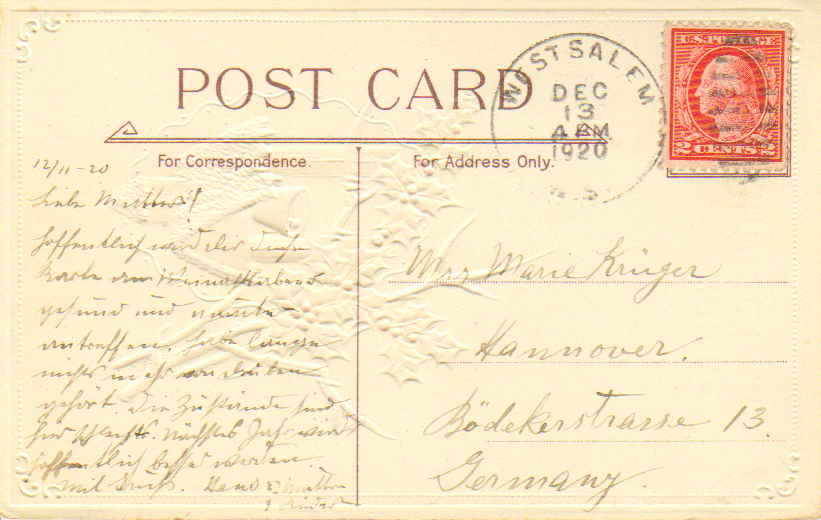 POST CARD
WEST SALEM
DEC
13
4 PM
1920
U.S. POSTAGE
2 CENTS 2
For Correspondence.
For Address Only.
12/11-20
Liebe Mutter!
hoffentlich wird dir diese
Karte am Weinachtabend
gesund und munter
antreffen. habe lange
nichts mehr von drüben
gehört. Die Zustände sind
hier schlecht. Nächstes Jahr wird
hoffentlich besser werden.
Mit Gruß. Hans &
Kinder
Mrs Marie Krüger
Hannover.
Bödekerstrasse 13.
Germany.